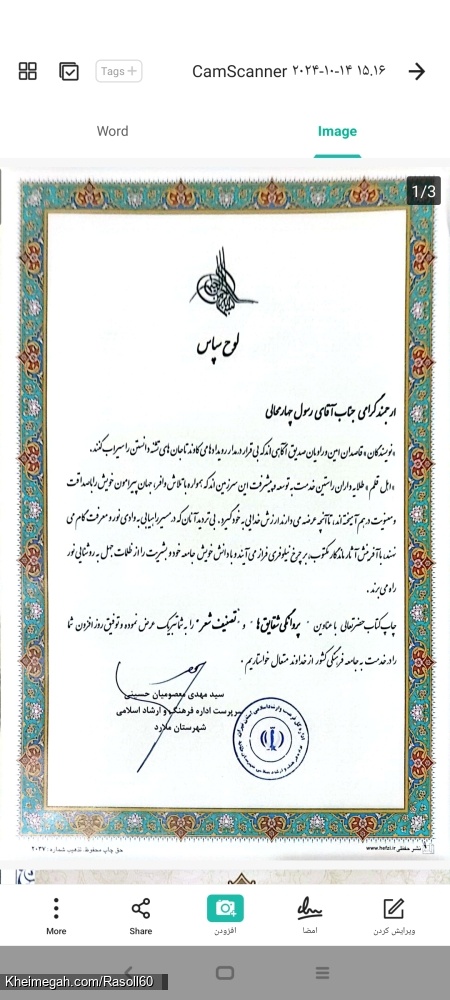 Tags+
CamScanner ۲۰۲۴-۱۰-۱۴ ۱۵.۱۶
Word
Image
1/3
لوح سپاس
ارجمند گرامی جناب آقای رسول چهارمحالی
«نویسندگان» قاصدان امین و راویان صدیق آگاهی اند که بی قرار در مدار رویدادها می کاوند تا جان های تشنه دانستن را سیراب کنند.
«اهل قلم» طلایه داران راستین خدمت به توسعه و پیشرفت این سرزمین اند که همواره با تلاش وافر، جهان پیرامون خویش را با صداقت
و معنویت در هم آمیخته اند، تا آنچه عرضه می دارند ارزش خدایی به خود گیرد. بی تردید آنان که در مسیر راهیابی به وادی نور و معرفت گام می
نهند، با آفرینش آثار ماندگار مکتوب، بر چرخ نیلوفری فراز می آیند و با دانش خویش جامعه خود و بشریت را از ظلمات جهل به روشنایی نور
راه می برند.
چاپ کتاب حضرتعالی با عناوین " پروانگی شقایق ها " و "تصنیف شعر" را به شما تبریک عرض نموده و توفیق روز افزون شما
را در خدمت به جامعه فرهنگی کشور از خداوند متعال خواستاریم.
سید مهدی معصومیان حسینی
سرپرست اداره فرهنگ و ارشاد اسلامی
شهرستان ملارد
نشر حفظی www.hefzi.ir
حق چاپ محفوظ. تذهیب شماره: ۲۰۳۷
More
Share
افزودن
امضا
ویرایش کردن
Kheimegah.com/Rasoll60